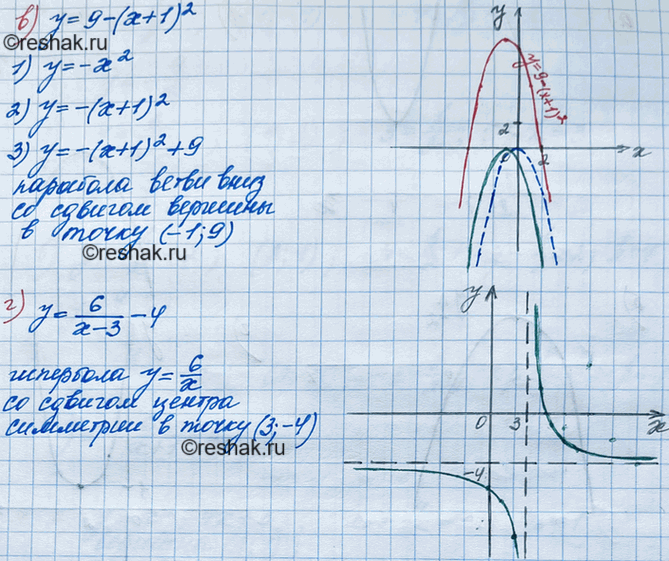 в) y = 9 - (x+1)²
©reshak.ru
1) y = -x²
2) y = -(x+1)²
3) y = -(x+1)² + 9
парабола ветви вниз
со сдвигом вершины
в точку (-1; 9)
©reshak.ru
y
y = 9 - (x+1)²
2
2
x
г) y = 6/(x-3) - 4
гипербола y = 6/x
со сдвигом центра
симметрии в точку (3; -4)
©reshak.ru
y
0 3 x
-4